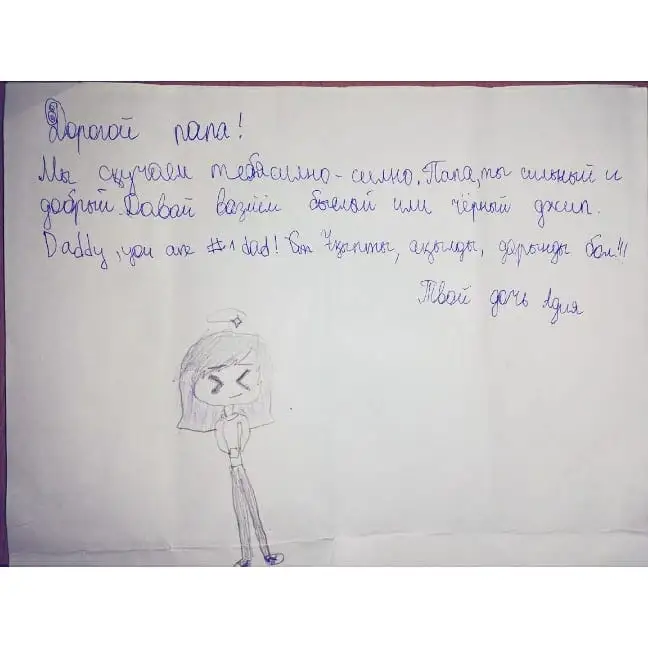 Дорогой папа!
Мы скучаем тебясилно-силно. Папа, ты сильный и
добрый. Давай возмём бьелой или чёрный джип.
Daddy, you are #1 dad! Ұқыпты, ақылды, дарынды бол!!!
Твой дочь Адия